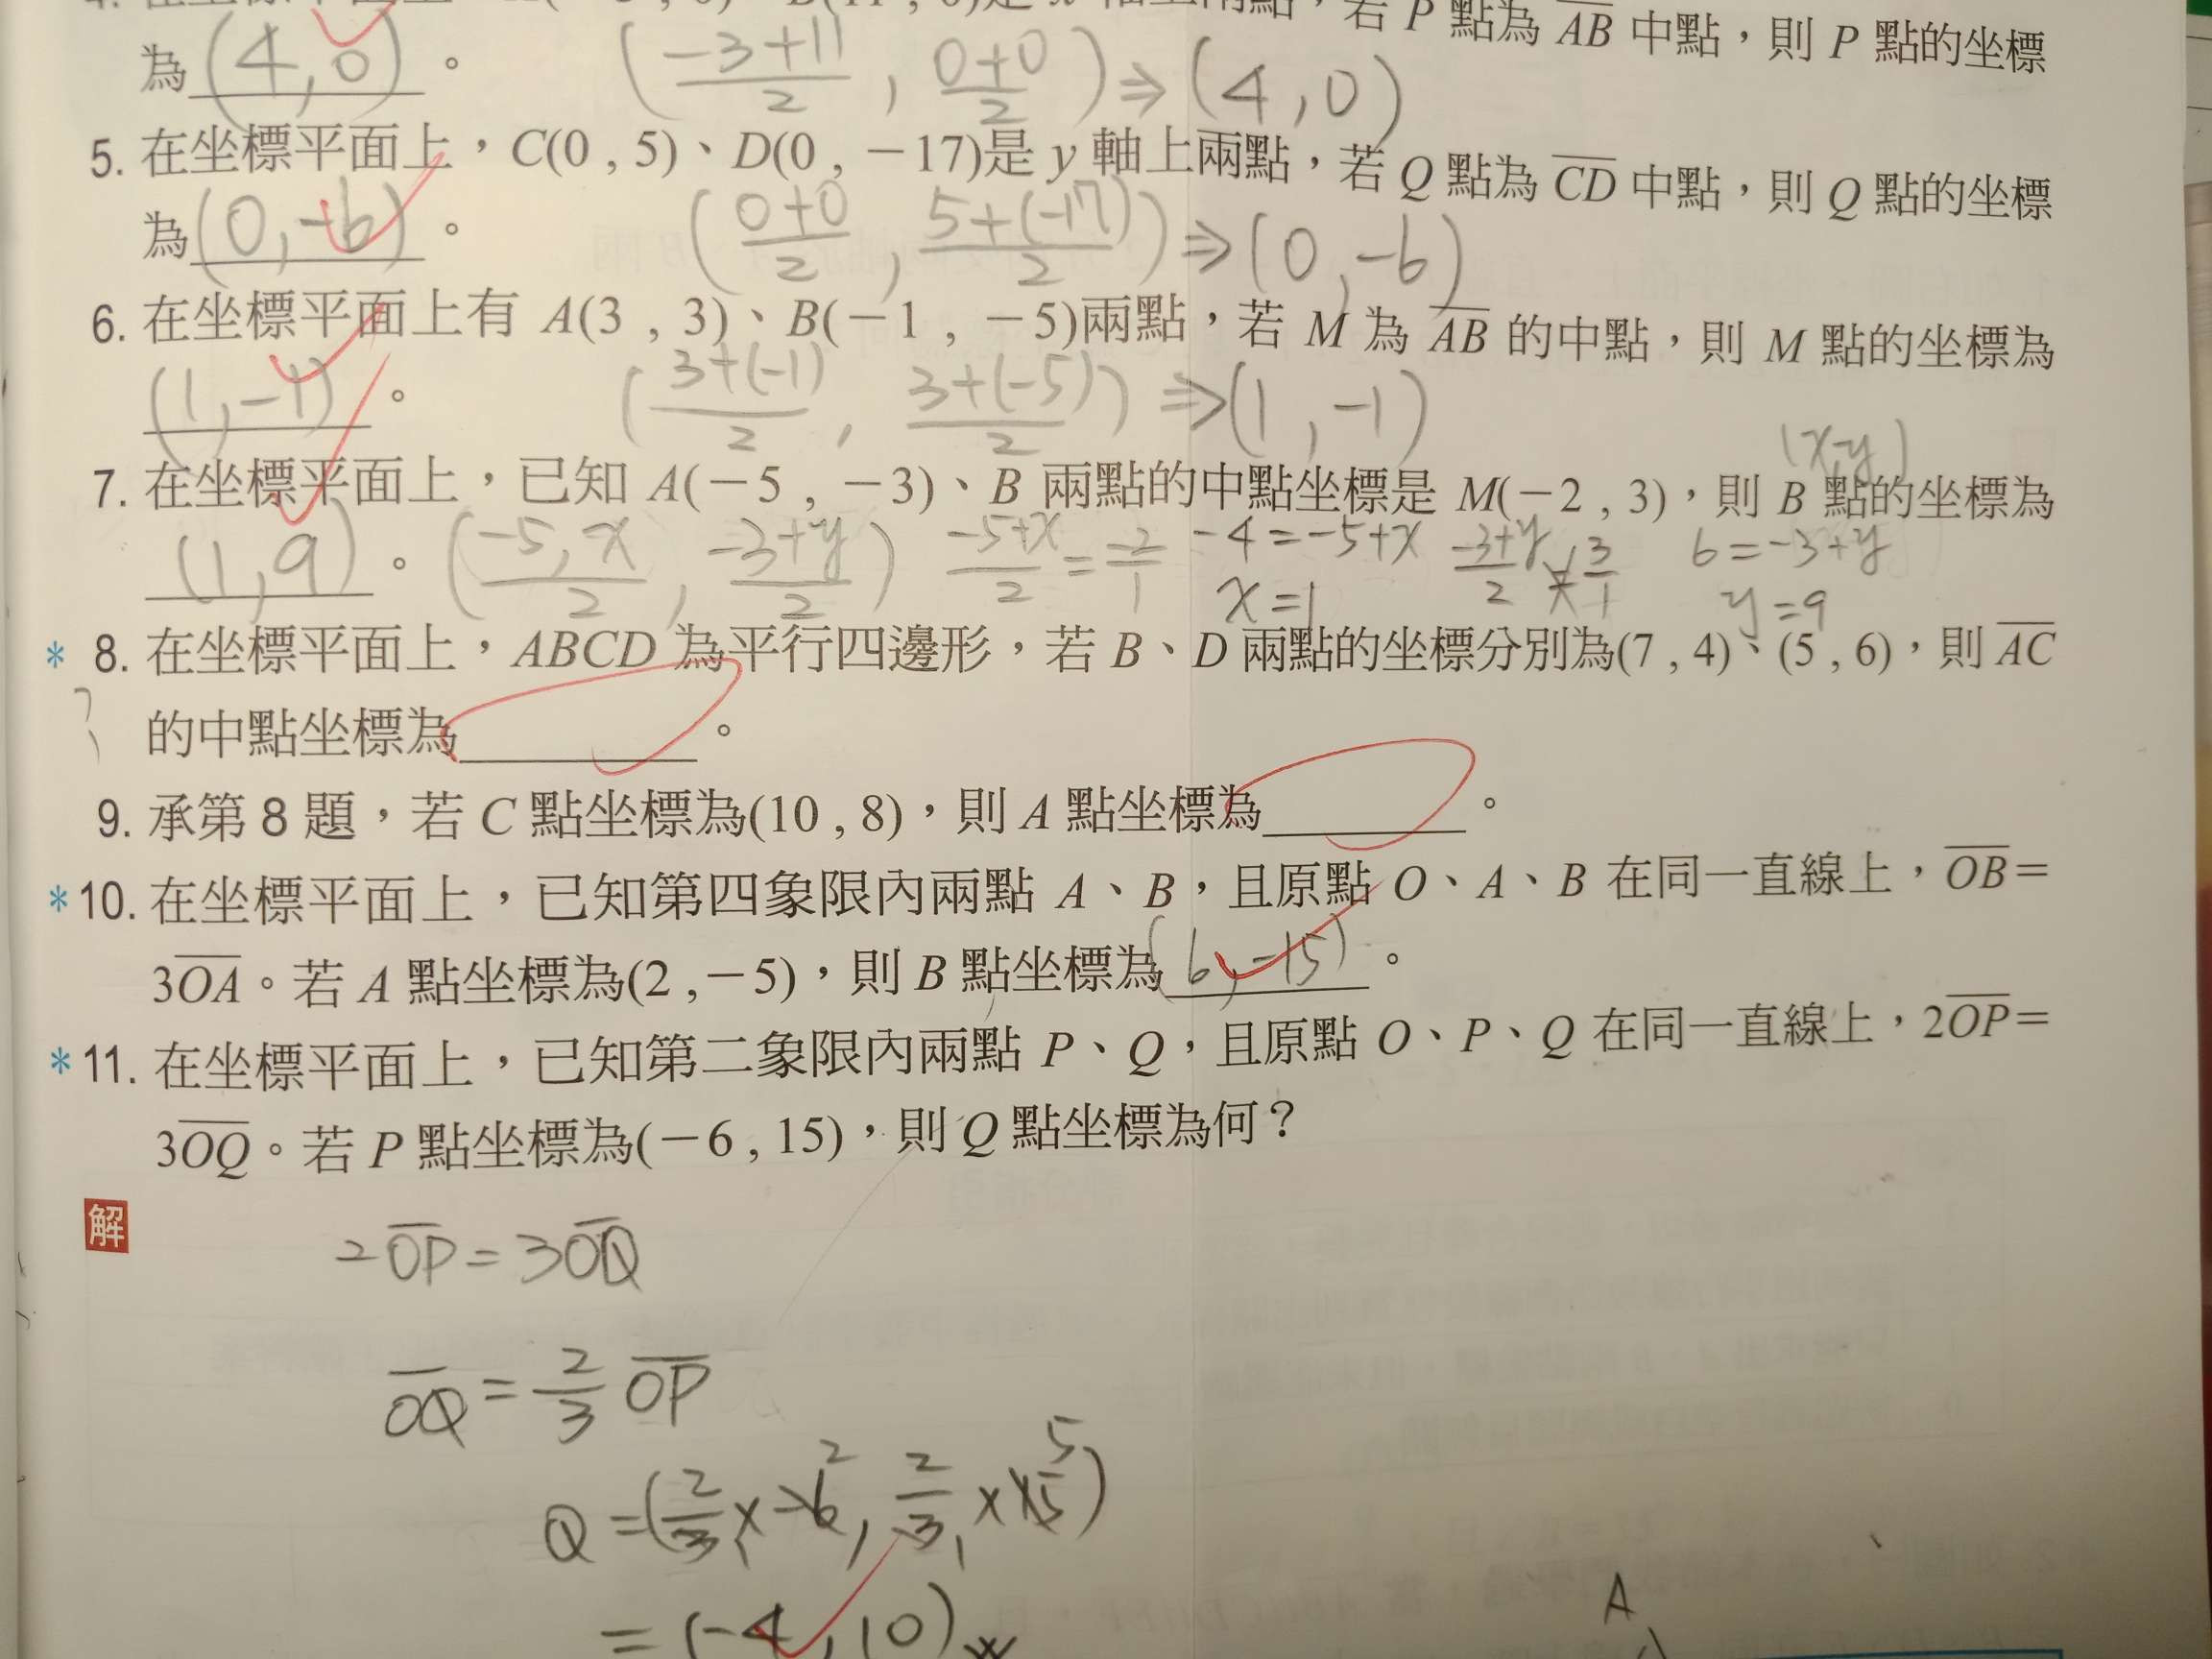 軸上兩點，若 P 點為 AB 中點，則 P 點的坐標
為(4,0)。 (-3+11/2, 0+0/2)⇒(4,0)
5. 在坐標平面上，C(0 , 5)、D(0 , －17)是 y 軸上兩點，若 Q 點為 CD 中點，則 Q 點的坐標
為(0,-6)。 (0+0/2, 5+(-17)/2)⇒(0,-6)
6. 在坐標平面上有 A(3 , 3)、B(－1 , －5)兩點，若 M 為 AB 的中點，則 M 點的坐標為
(1,-1)。 (3+(-1)/2, 3+(-5)/2)⇒(1,-1)
(x-y)
7. 在坐標平面上，已知 A(－5 , －3)、B 兩點的中點坐標是 M(－2 , 3)，則 B 點的坐標為
(1,9)。(-5,x/2, -3+y/2) -5+x/2=-2/1 -4=-5+x -3+y/2=3/1 6=-3+y
x=1 y=9
*8. 在坐標平面上，ABCD 為平行四邊形，若 B、D 兩點的坐標分別為(7 , 4)、(5 , 6)，則 AC
的中點坐標為______。
9. 承第 8 題，若 C 點坐標為(10 , 8)，則 A 點坐標為______。
*10. 在坐標平面上，已知第四象限內兩點 A、B，且原點 O、A、B 在同一直線上，OB＝
3OA。若 A 點坐標為(2 ,－5)，則 B 點坐標為(6,-15)。
*11. 在坐標平面上，已知第二象限內兩點 P、Q，且原點 O、P、Q 在同一直線上，2OP＝
3OQ。若 P 點坐標為(－6 , 15)，則 Q 點坐標為何？
解
2OP=3OQ
OQ=2/3 OP
Q=(2/3×-6, 2/3×15)
=(-4,10)
A